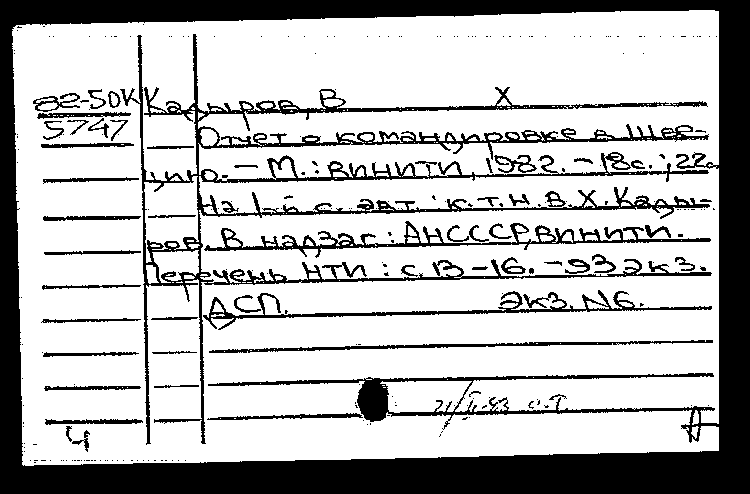 82-50К Кадыров, В Х
5747 Отчет о командировке в Шве-
цию. – М.: ВИНИТИ, 1982. – 18с.; 22с
На 1-й с. авт.: к.т.н. В.Х. Кады-
ров. В надзаг: АНСССР, ВИНИТИ.
Перечень НТИ: с. 13-16. – 93 экз.
ДСП. Экз. N6.
21/II-83 О.Т.
4 А